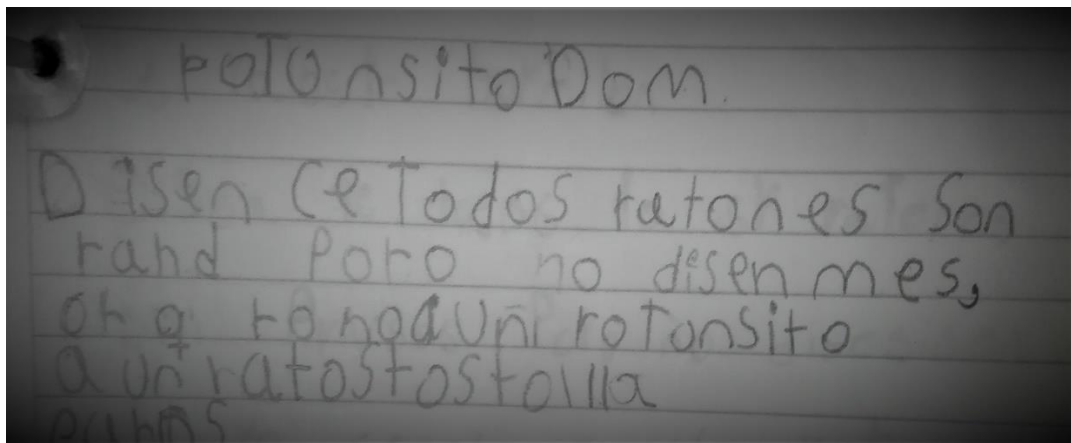 rolonsito Dom.
Disen ce Todos ratones Son
rand Poro no disen mes,
on a rongaun rotonsito
a un ratostostollla